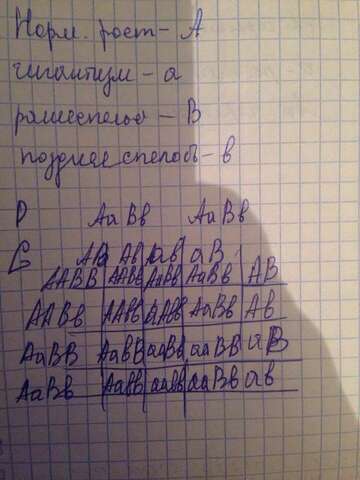 Норм. рост - А
гигантизм - а
раннеспелое - В
позднее спелость - в
Р АаВв АаВв
G АВ Ав ав аВ
ААВВ ААВв АаВв АаВВ АВ
ААВв ААвв аАвв АаВв Ав
АаВВ АаВВ ааВв ааВВ аВ
АаВв Аавв аавв ааВв ав